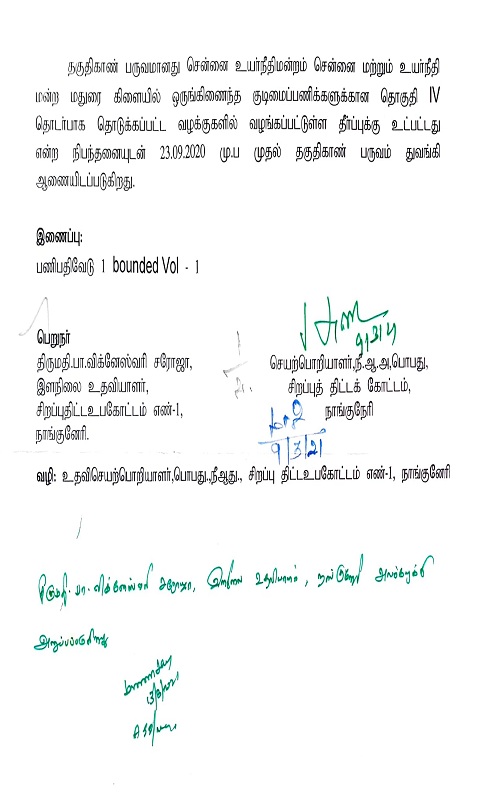 தகுதிகாண் பருவமானது சென்னை உயர்நீதிமன்றம் சென்னை மற்றும் உயர்நீதி
மன்ற மதுரை கிளையில் ஒருங்கிணைந்த குடிமைப்பணிக்களுக்கான தொகுதி IV
தொடர்பாக தொடுக்கப்பட்ட வழக்குகளில் வழங்கப்பட்டுள்ள தீர்ப்புக்கு உட்பட்டது
என்ற நிபந்தனையுடன் 23.09.2020 மு.ப முதல் தகுதிகாண் பருவம் துவங்கி
ஆணையிடப்படுகிறது.
இணைப்பு:
பணிபதிவேடு 1 bounded Vol - 1
9/3/21
பெறுநர்
திருமதி.பா.விக்னேஸ்வரி சரோஜா,
இளநிலை உதவியாளர்,
சிறப்புதிட்டஉபகோட்டம் எண்-1,
நாங்குனேரி.
செயற்பொறியாளர்,நீ.ஆ.அ,பொபது,
சிறப்புத் திட்டக் கோட்டம்,
நாங்குநேரி
9/3/21
வழி: உதவிசெயற்பொறியாளர்,பொபது.,நீஆது., சிறப்பு திட்டஉபகோட்டம் எண்-1, நாங்குனேரி
திருமதி. பா. விக்னேஸ்வரி சரோஜா, இளநிலை உதவியாளர்,